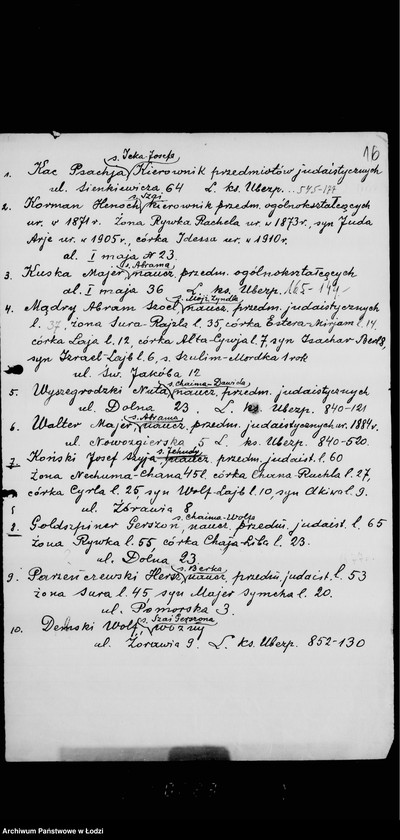 16
s. Icka Josefa
1. Kac Psachja, Kierownik przedmiotów judaistycznych
ul. Sienkiewicza 64 L. ks. Ubezp. ... 545-177
s. Szai
2. Korman Henoch, kierownik przedm. ogólnokształcących
ur. w 1871 r. żona Rywka Rachela ur. w 1873 r., syn Juda
Arje ur. w 1905 r., córka Idessa ur. w 1910 r.
al. I maja № 23.
s. Abrama
3. Kuska Majer, naucz. przedm. ogólnokształcących
al. I maja 36 L. ks. Ubezp. 165-144
s. Moji Zyndla
4. Mądry Abram Szoel, naucz. przedm. judaistycznych
l. 37, żona Sura-Rajzla l. 35, córka Estera-Mirjam l. 14,
córka Laja l. 12, córka Alta-Cywja l. 7, syn Isachar Ber 8,
syn Izrael-Lajb l. 6, s. Szulim-Mordka 1 rok
ul. Św. Jakóba 12
s. Chaima-Dawida
5. Wyszegrodzki Nuta, naucz. przedm. judaistycznych
ul. Dolna 23. L. ks. Ubezp. 840-121
s. Abrama
6. Walter Majer, naucz. przedm. judaistycznych ur. 1884 r.
ul. Nowozgierska 5 L. ks. Ubezp. 840-520.
s. Jehudy
7. Koński Josef Szyja naucz. przedm. judaist. l. 60
żona Nechuma-Chana 45 l. córka Chana-Ruchla l. 27,
córka Cyrla l. 25, syn Wolf-Lajb l. 10, syn Akiwa l. 9.
ul. Zórawia 8
s. Chaima-Wolfa
8. Goldszpiner Gerszon, naucz. przedm. judaist. l. 65
żona Rywka l. 55 córka Chaja-Liba l. 23.
ul. Dolna 23
s. Berka
9. Parzenczewski Hersz, naucz. przedm. judaist. l. 53
żona Sura l. 45 syn Majer Symcha l. 20.
ul. Pomorska 3.
s. Szai Gerszona
10. Demski Wolf, woźny
ul. Żórawia 9. L. ks. Ubezp. 852-130
Archiwum Państwowe w Łodzi